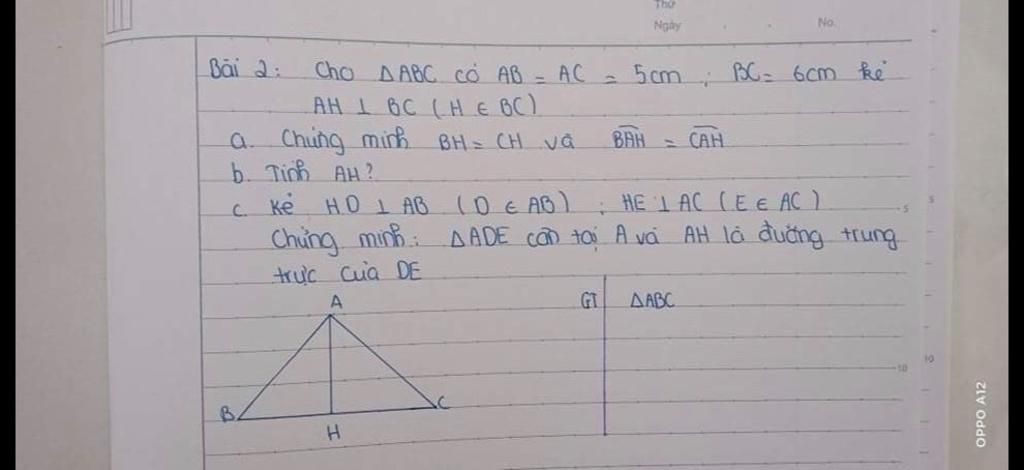 Thứ
Ngày . . No.
Bài 2: Cho ΔABC có AB = AC = 5cm ; BC = 6cm kẻ
AH ⊥ BC (H ∈ BC)
a. Chứng minh BH = CH và BAH = CAH
b. Tính AH?
c. Kẻ HD ⊥ AB (D ∈ AB) ; HE ⊥ AC (E ∈ AC)
5 5
Chứng minh: ΔADE cân tại A và AH là đường trung
trực của DE
A
GT ΔABC
10 10
B C
H
OPPO A12